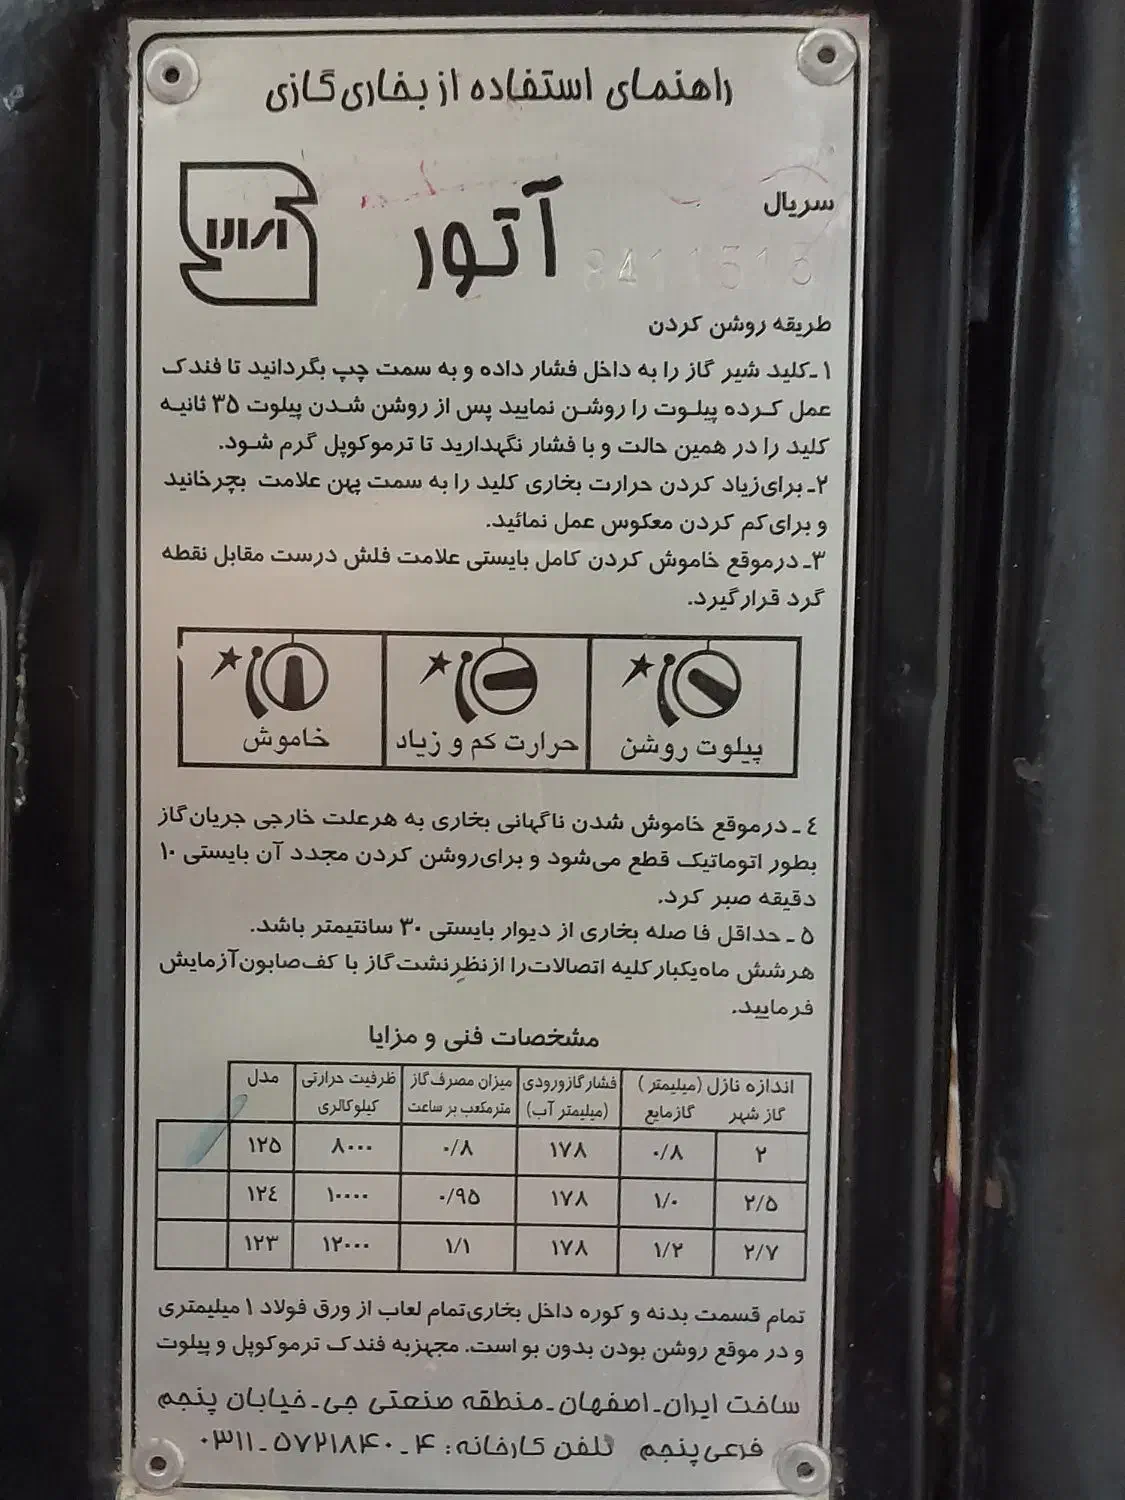 راهنمای استفاده از بخاری گازی
سریال
آتور
8411513
طریقه روشن کردن
۱ـ کلید شیر گاز را به داخل فشار داده و به سمت چپ بگردانید تا فندک
عمل کرده پیلوت را روشن نمایید پس از روشن شدن پیلوت ۳۵ ثانیه
کلید را در همین حالت و با فشار نگهدارید تا ترموکوپل گرم شود.
۲ـ برای زیاد کردن حرارت بخاری کلید را به سمت پهن علامت بچرخانید
و برای کم کردن معکوس عمل نمائید.
۳ـ درموقع خاموش کردن کامل بایستی علامت فلش درست مقابل نقطه
گرد قرار گیرد.
پیلوت روشن حرارت کم و زیاد خاموش
٤ ـ درموقع خاموش شدن ناگهانی بخاری به هرعلت خارجی جریان گاز
بطور اتوماتیک قطع می‌شود و برای روشن کردن مجدد آن بایستی ۱۰
دقیقه صبر کرد.
۵ ـ حداقل فا صله بخاری از دیوار بایستی ۳۰ سانتیمتر باشد.
هرشش ماه یکبار کلیه اتصالات را ازنظرِنشت گاز با کف صابون آزمایش
فرمایید.
مشخصات فنی و مزایا
اندازه نازل (میلیمتر ) فشار گاز ورودی میزان مصرف گاز ظرفیت حرارتی مدل
گاز شهر گاز مایع (میلیمتر آب) مترمکعب بر ساعت کیلو کالری
۲ ۰/۸ ۱۷۸ ۰/۸ ۸۰۰۰ ۱۲۵
۲/۵ ۱/۰ ۱۷۸ ۰/۹۵ ۱۰۰۰۰ ۱۲٤
۲/۷ ۱/۲ ۱۷۸ ۱/۱ ۱۲۰۰۰ ۱۲۳
تمام قسمت بدنه و کوره داخل بخاری تمام لعاب از ورق فولاد ۱ میلیمتری
و در موقع روشن بودن بدون بو است. مجهزبه فندک ترموکوپل و پیلوت
ساخت ایران ـ اصفهان ـ منطقه صنعتی جی ـ خیابان پنجم
فرعی پنجم تلفن کارخانه: ۴ ـ ۵۷۲۱۸۴۰ ـ ۰۳۱۱